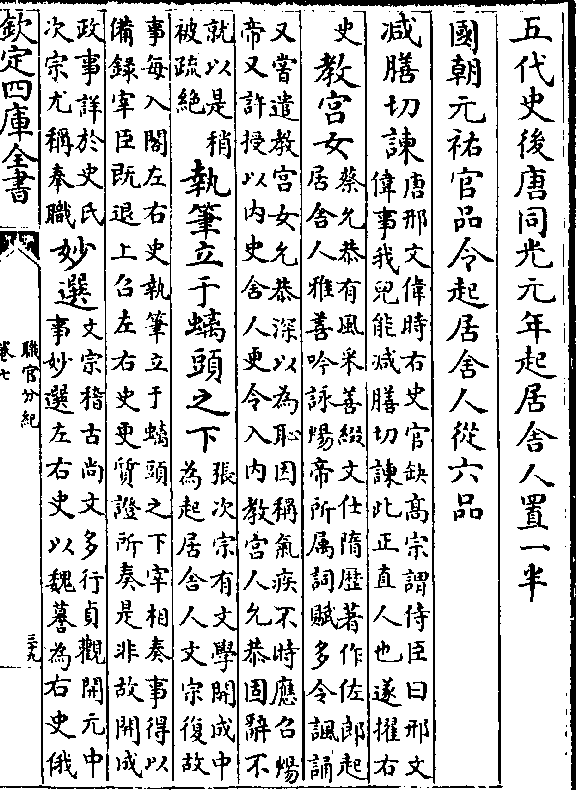 五代史後唐同光元年起居舍人置一半
國朝元祐官品令起居舍人從六品
减膳切諫唐邢文偉時右史官缺髙宗謂侍臣曰邢文
偉事我兒能减膳切諫此正直人也遂擢右
史教宫女蔡允恭有風采善綴文仕隋歴著作佐郎起
居舍人雅善吟詠煬帝所属詞賦多令諷誦
又嘗遣教宫女允恭深以為恥因稱氣疾不時應召煬
帝又許授以内史舍人更令入内教宫人允恭固辭不
就以是稍
被疏絶
執筆立于螭頭之下張次宗有文學開成中
為起居舍人文宗復故
事每入閤左右史執筆立于螭頭之下宰相奏事得以
備録宰臣既退上召左右史更質證所奏是非故開成
政事詳於史氏
次宗尤稱奉職
妙選文宗稽古尚文多行貞觀開元中
事妙選左右史以魏謩為右史俄
欽定四庫全書
職官分紀
卷七
三十九